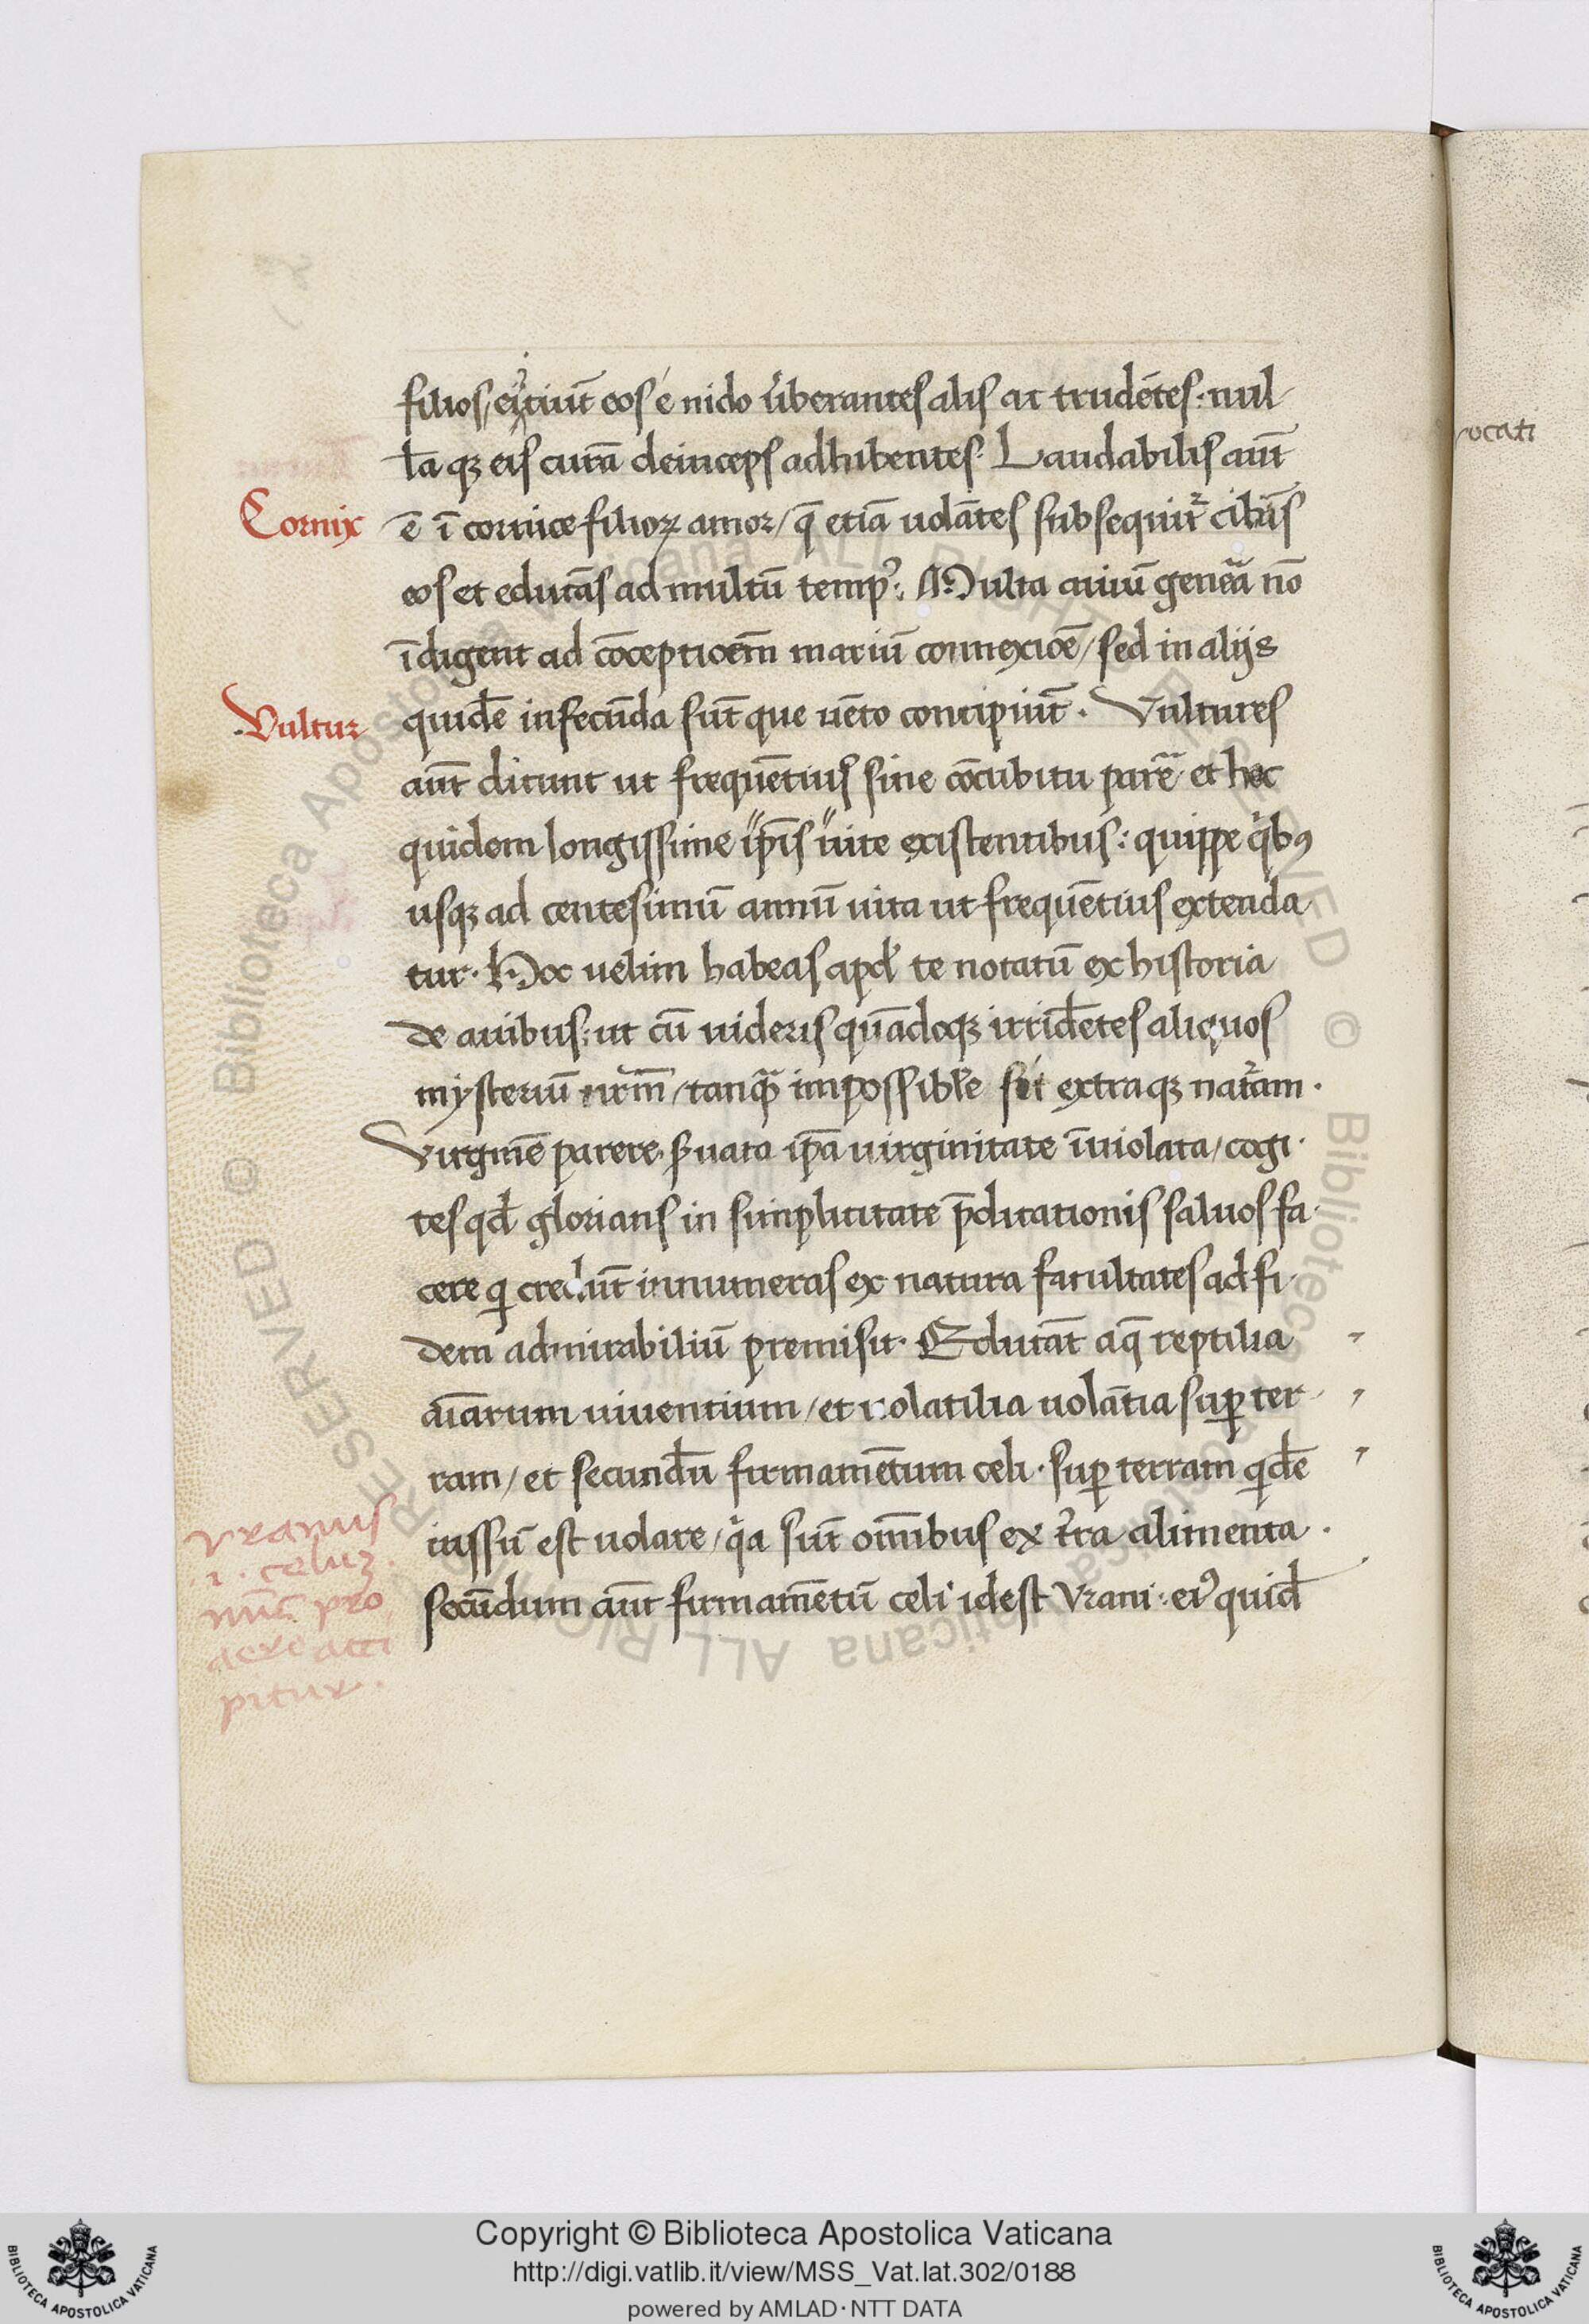 filios, eijciūt eos é nido ủberantes alis ac trudētes: nul
la qꝫ eis curā deinceps adhibentes. Laudabilis aūt
Cornix
ē ī cornice filioꝝ amor/ q̄ etiā uolātes subsequit᷑ cibās
eos et educās ad multū temp⁹: Multa auiū genera nō
īdigent ad cōceptioem̄ mariū connexioē/ sed in alijs
Vultur
quidē infecūda sūt que uēto concipiūt. Vultures
aūt dicunt ut frequētius sine cōcubitu parē et hec
quidem longissime ip̄is uite existentibus: quippe qͥbꝰ
usqꝫ ad centesimū annū uita ut frequētius extenda
tur. Hoc uelim habeas apd̛ te notatū ex historia
de auibus: ut cū uideris quādoqꝫ irridētes aliquos
mysteriū nr̄m/ tanqᷓ impossibile sit extraqꝫ natᷣam.
Virginē parere seruata ip̄a uirginitate īuiolata/ cogi
tes qd̄ glorians in simplicitate p̄dicationis saluos fa
cere q̇ credūt innumeras ex natura facultates ad fi
dem admirabiliū premisit. Educāt aq̄ reptilia
aīarum uiuentium/ et uolatilia uolātia suꝑ ter
ram/ et secundū firmamētum celi. suꝑ terram qd̄e
iussū est uolare/ qᷓa sūt om̄ibus ex t̄ra alimenta.
secūdum aūt firmamētū celi idest Vrani: ei⁹ quid̄
vranus
.i. celuꝫ.
nūc pro
aere acci
pitur.
vocati
Copyright © Biblioteca Apostolica Vaticana
http://digi.vatlib.it/view/MSS_Vat.lat.302/0188
powered by AMLAD·NTT DATA